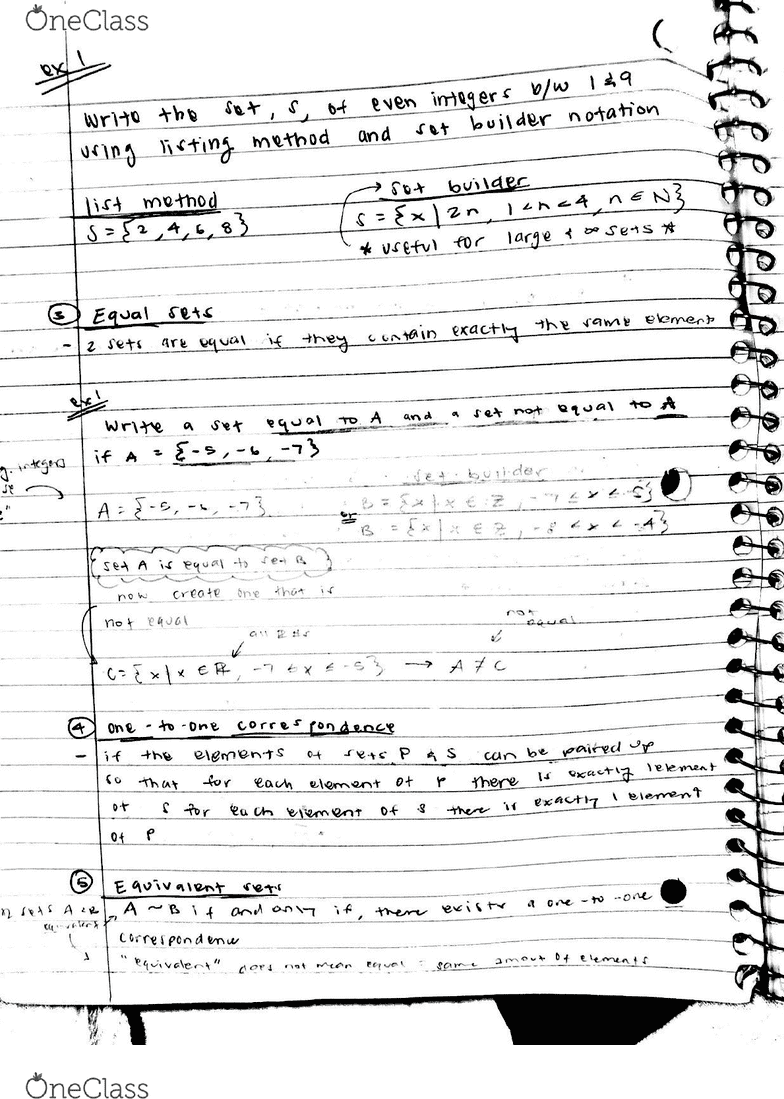 OneClass
ex 1
Write the set, S, of even integers b/w 1 & 9
using listing method and set builder notation
list method
S = {2, 4, 6, 8}
→ set builder
S = {x | 2n, 1<n<4, n ∈ N}
* useful for large & ∞ sets *
③ Equal sets
- 2 sets are equal if they contain exactly the same element
ex 1
Write a set equal to A and a set not equal to A
if A = {-5, -6, -7}
integers
set builder
A = {-5, -6, -7}
B = {x | x ∈ Z, -7 ≤ x ≤ -5}
or
B = {x | x ∈ Z, -8 < x < -4}
set A is equal to set B
now create one that is
not equal
all #s
not equal
C = {x | x ∈ R, -7 ≤ x ≤ -5} → A ≠ C
④ one-to-one correspondence
- if the elements of sets P & S can be paired up
so that for each element of P there is exactly 1 element
of S for each element of S there is exactly 1 element
of P
⑤ Equivalent sets
sets A & B
equivalent
A ~ B if and only if, there exists a one-to-one
correspondence
"equivalent" does not mean equal : same amout of elements
OneClass